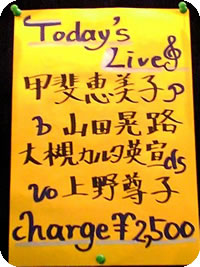 Today's
Live
甲斐恵美子p
b 山田晃路
大槻カルタ英宣ds
vo 上野尊子
charge ¥2,500